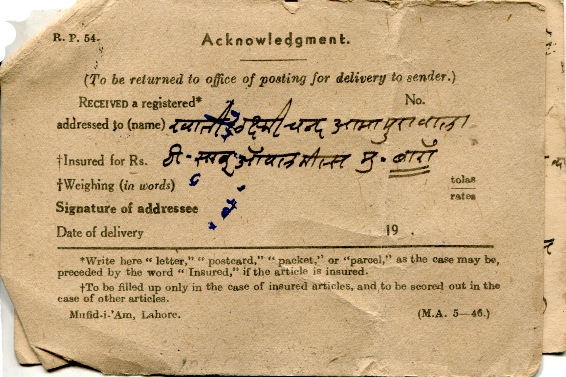 R. P. 54.
Acknowledgment.
(To be returned to office of posting for delivery to sender.)
RECEIVED a registered* No.
addressed to (name) लक्ष्मीचन्द
†Insured for Rs. मु. बाराँ
†Weighing (in words) tolas
rates
Signature of addressee
Date of delivery 19 .
*Write here “ letter,” “ postcard,” “ packet,” or “parcel,” as the case may be,
preceded by the word “ Insured,” if the article is insured.
†To be filled up only in the case of insured articles, and to be scored out in the
case of other articles.
Mufid-i-’Am, Lahore. (M.A. 5—46.)